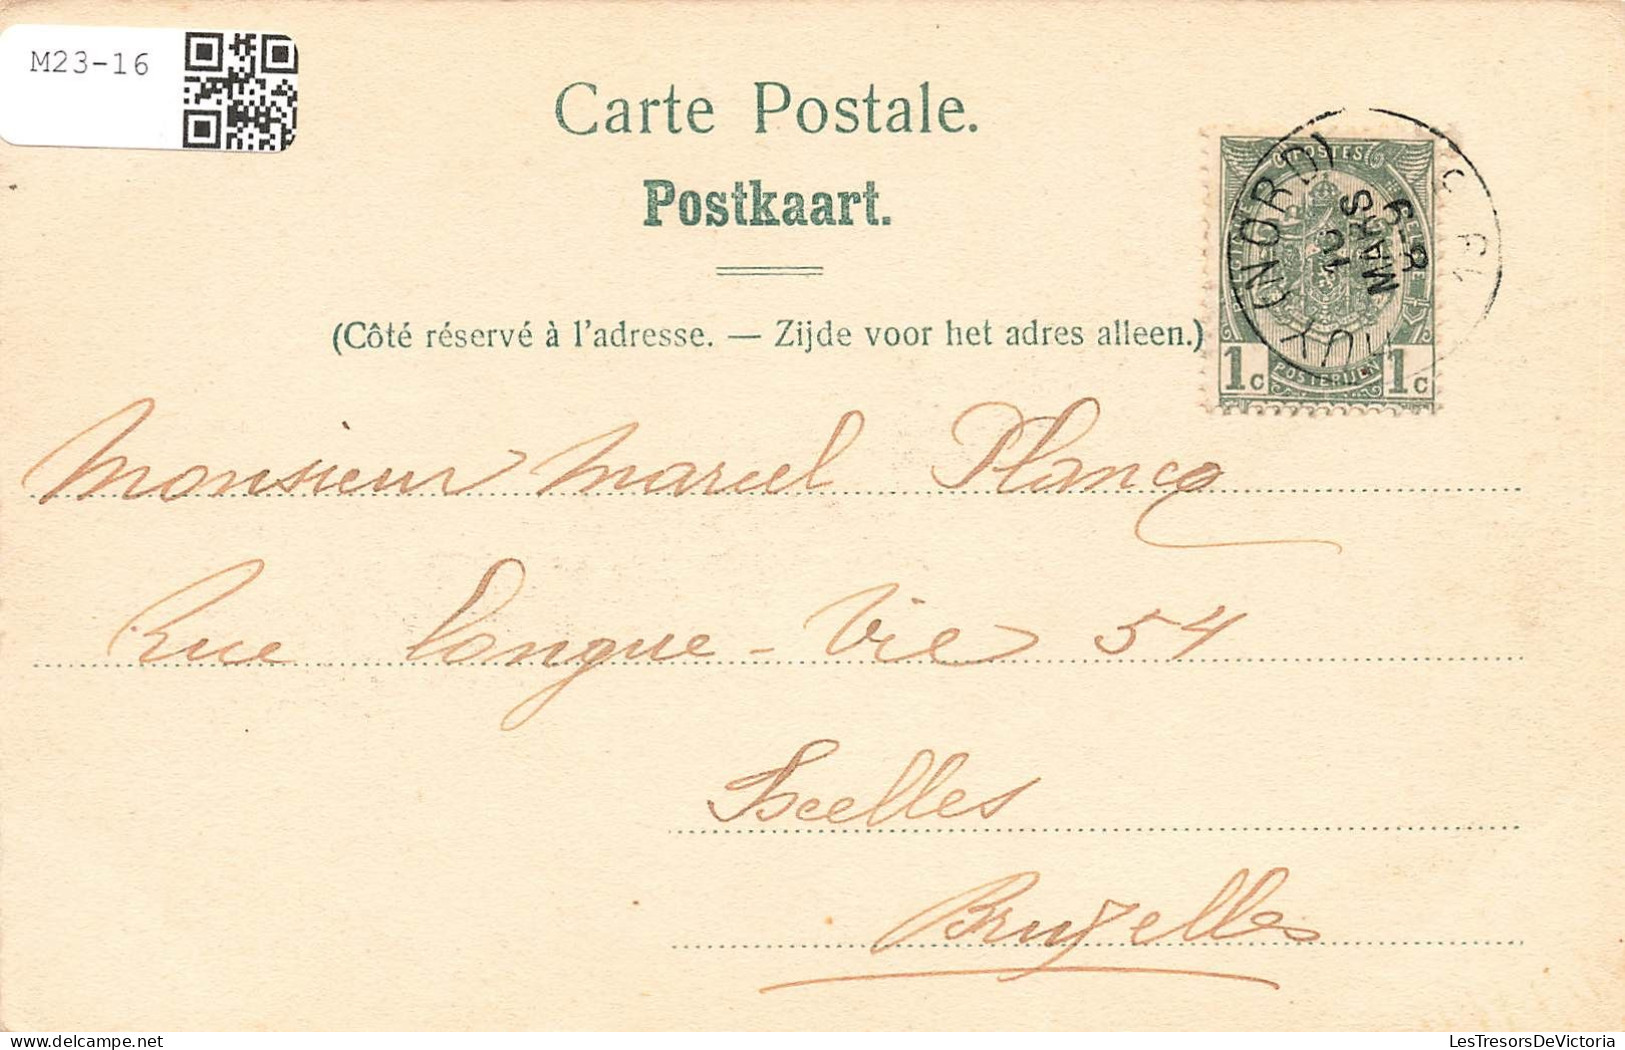 M23-16
Carte Postale.
Postkaart.
(Côté réservé à l'adresse. — Zijde voor het adres alleen.)
POSTES
1c POSTERIJEN 1c
HUY (NORD)
10
MARS
8-9
Monsieur Marcel Plancq
Rue Longue-Vie 54
Ixelles
Bruxelles
LesTresorsDeVictoria